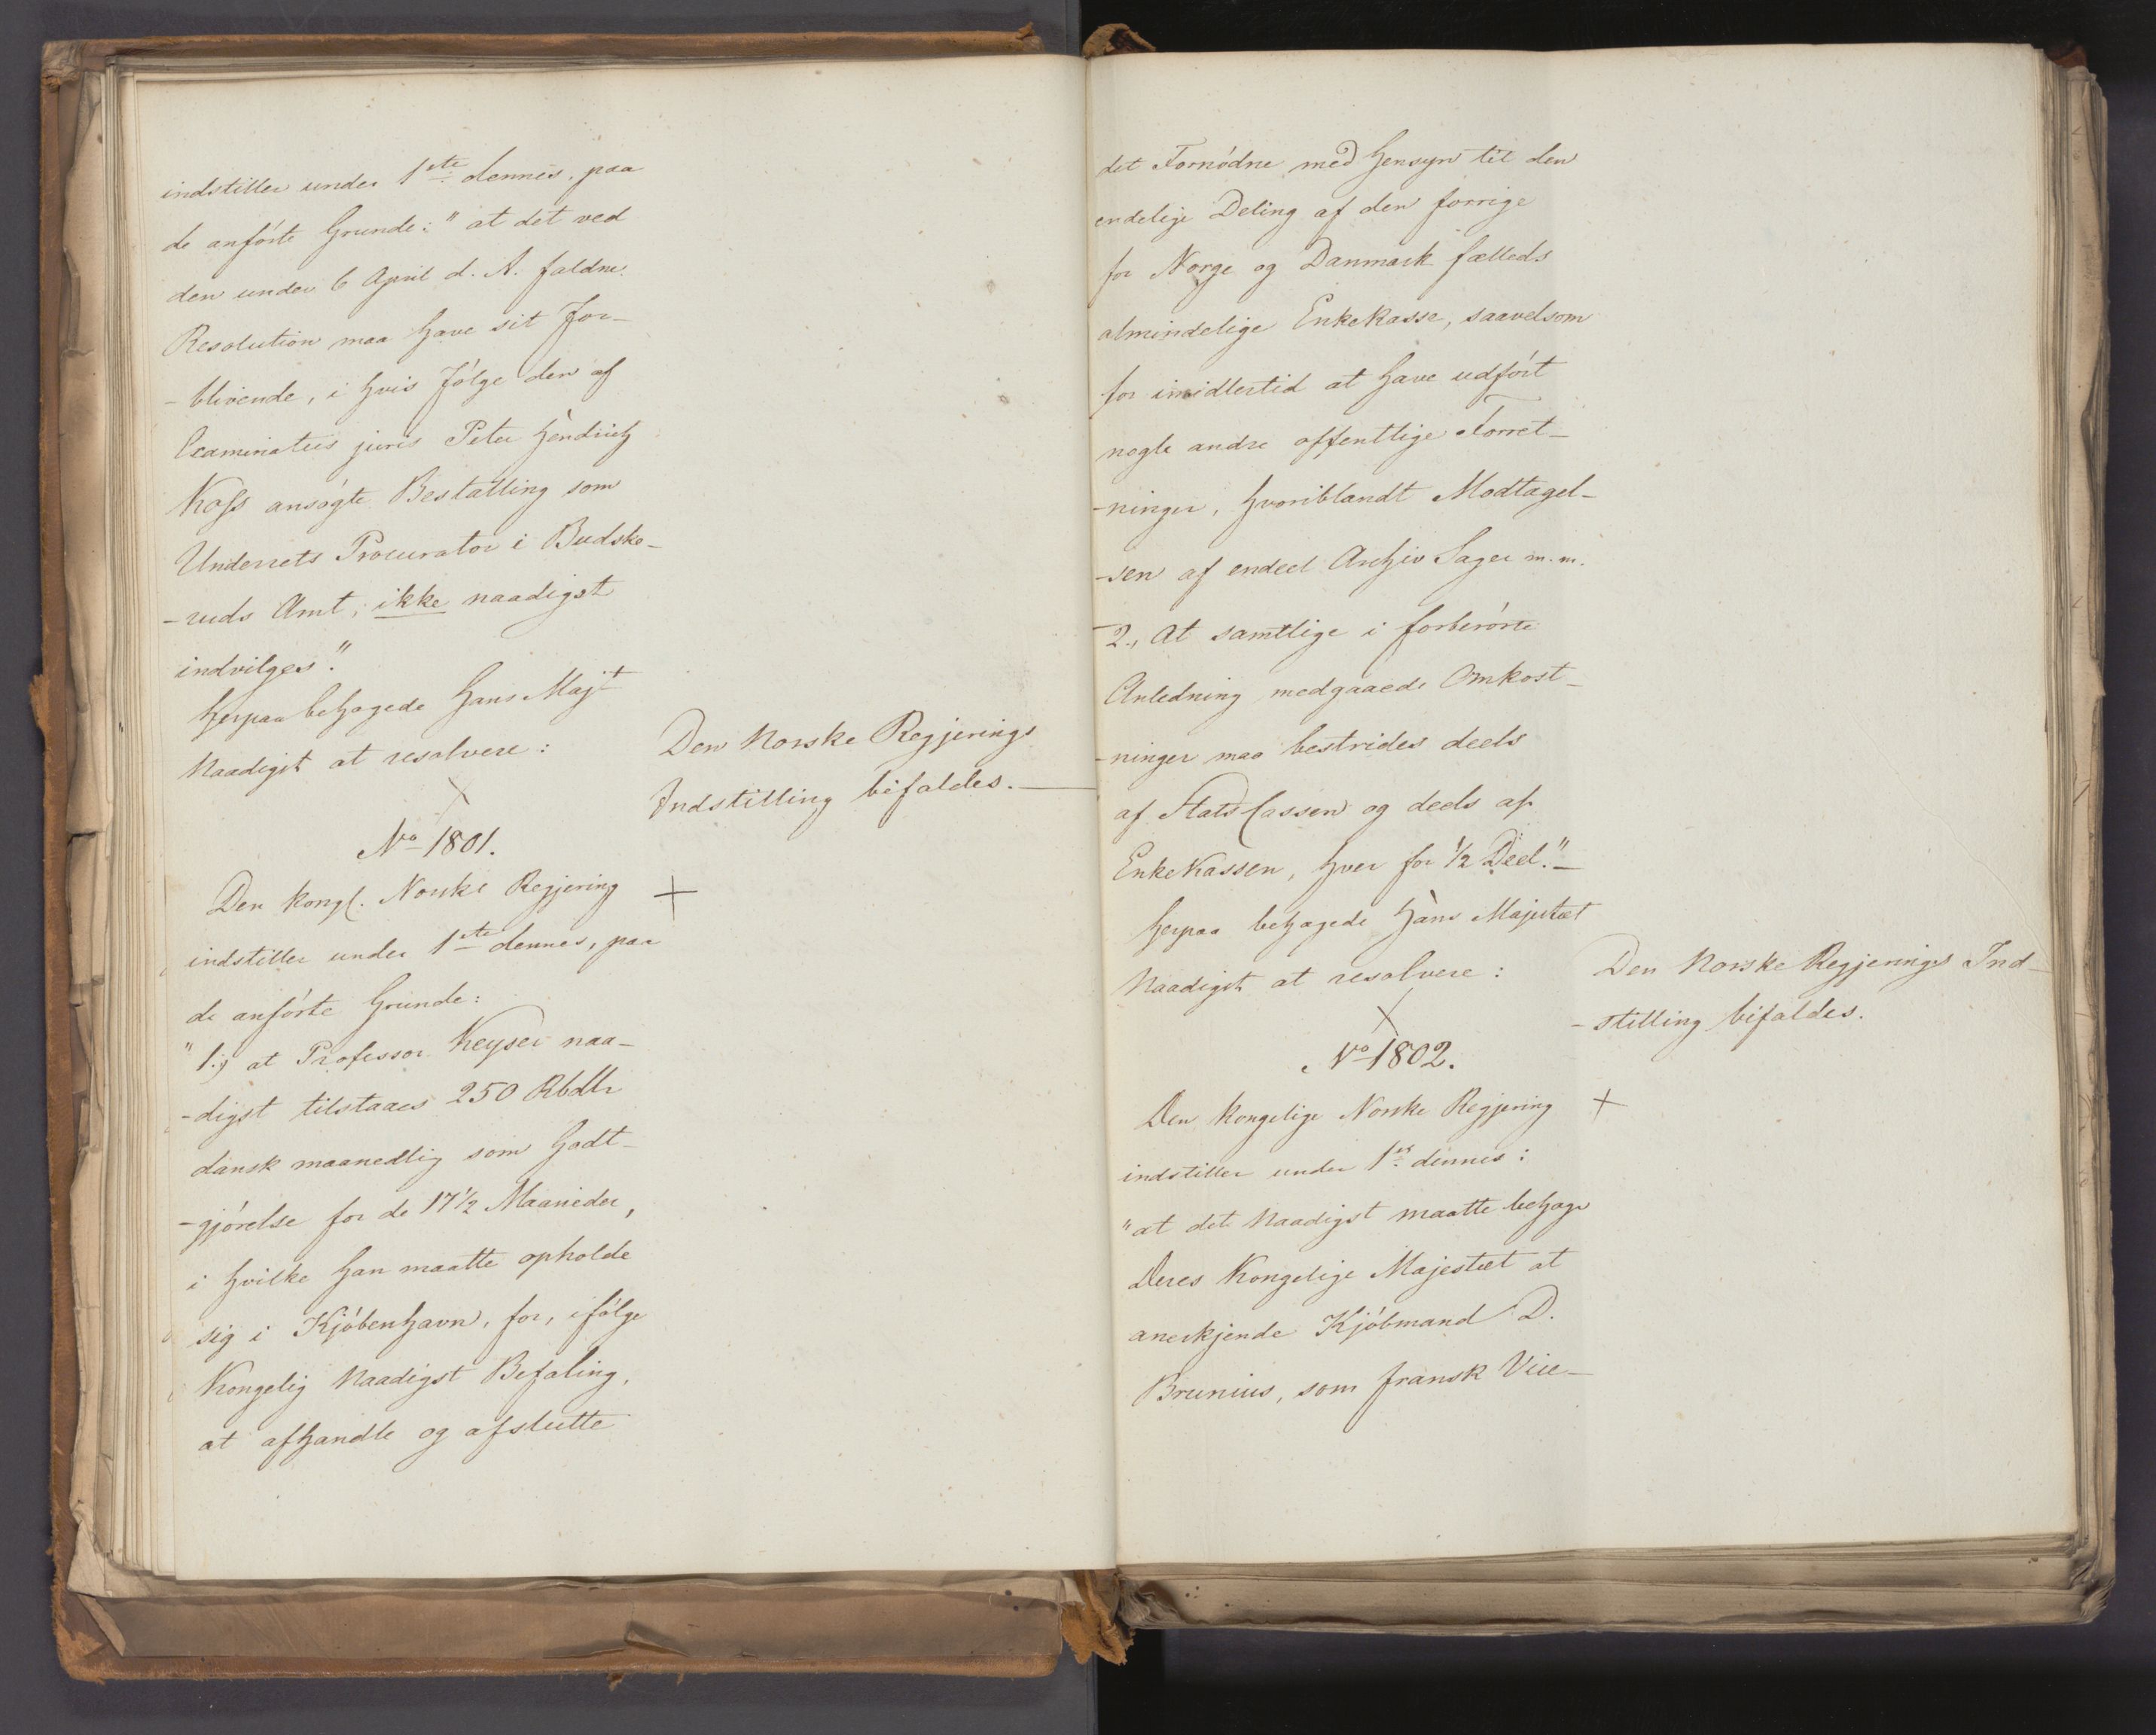 indstiller under 1ste dennes, paa
de anförte Grunde: "at det ved
den under 6 April d. A. faldne
Resolution maa have sit For-
-blivende, i hvis Fölge den af
Examinatus juris Peter Hendrich
Koss ansögte Bestalling som
Underrets Procurator i Budske-
-ruds Amt, ikke naadigst
indvilges".
Herpaa behagede Hans Majt
Naadigst at resolvere:
Den Norske Regjerings
Indstilling bifaldes.—
No 1801.
Den kongl. Norske Regjering
indstiller under 1ste dennes, paa
de anförte Grunde:
"1.) at Professor Keyser naa-
-digst tilstaaes 250 Rbdlr
dansk maanedlig som Godt-
-gjörelse for de 17½ Maaneder,
i hvilke han maatte opholde
sig i Kjöbenhavn, for, ifölge
Kongelig Naadigst Befaling,
at afhandle og afslutte
det Fornödne med Hensyn til den
endelige Deling af den forrige
for Norge og Danmark fælleds
almindelige Enkekasse, saavelsom
for imidlertid at have udfört
nogle andre offentlige Forret-
-ninger, hvoriblandt Modtagel-
-sen af endeel Archiv Sager m.m.
2., At samtlige i forberörte
Anledning medgaaede Omkost-
-ninger maa bestrides deels
af Stats Cassen og deels af
EnkeKassen, hver for ½ Deel."—
Herpaa behagede Hans Majestæt
Naadigst at resolvere:
Den Norske Regjerings Ind-
-stilling bifaldes.
No 1802.
Den Kongelige Norske Regjering
indstiller under 1ste dennes:
"at det Naadigst maatte behage
Deres Kongelige Majestæt at
anerkjende Kjöbmand D.
Brunius, som fransk Vice-